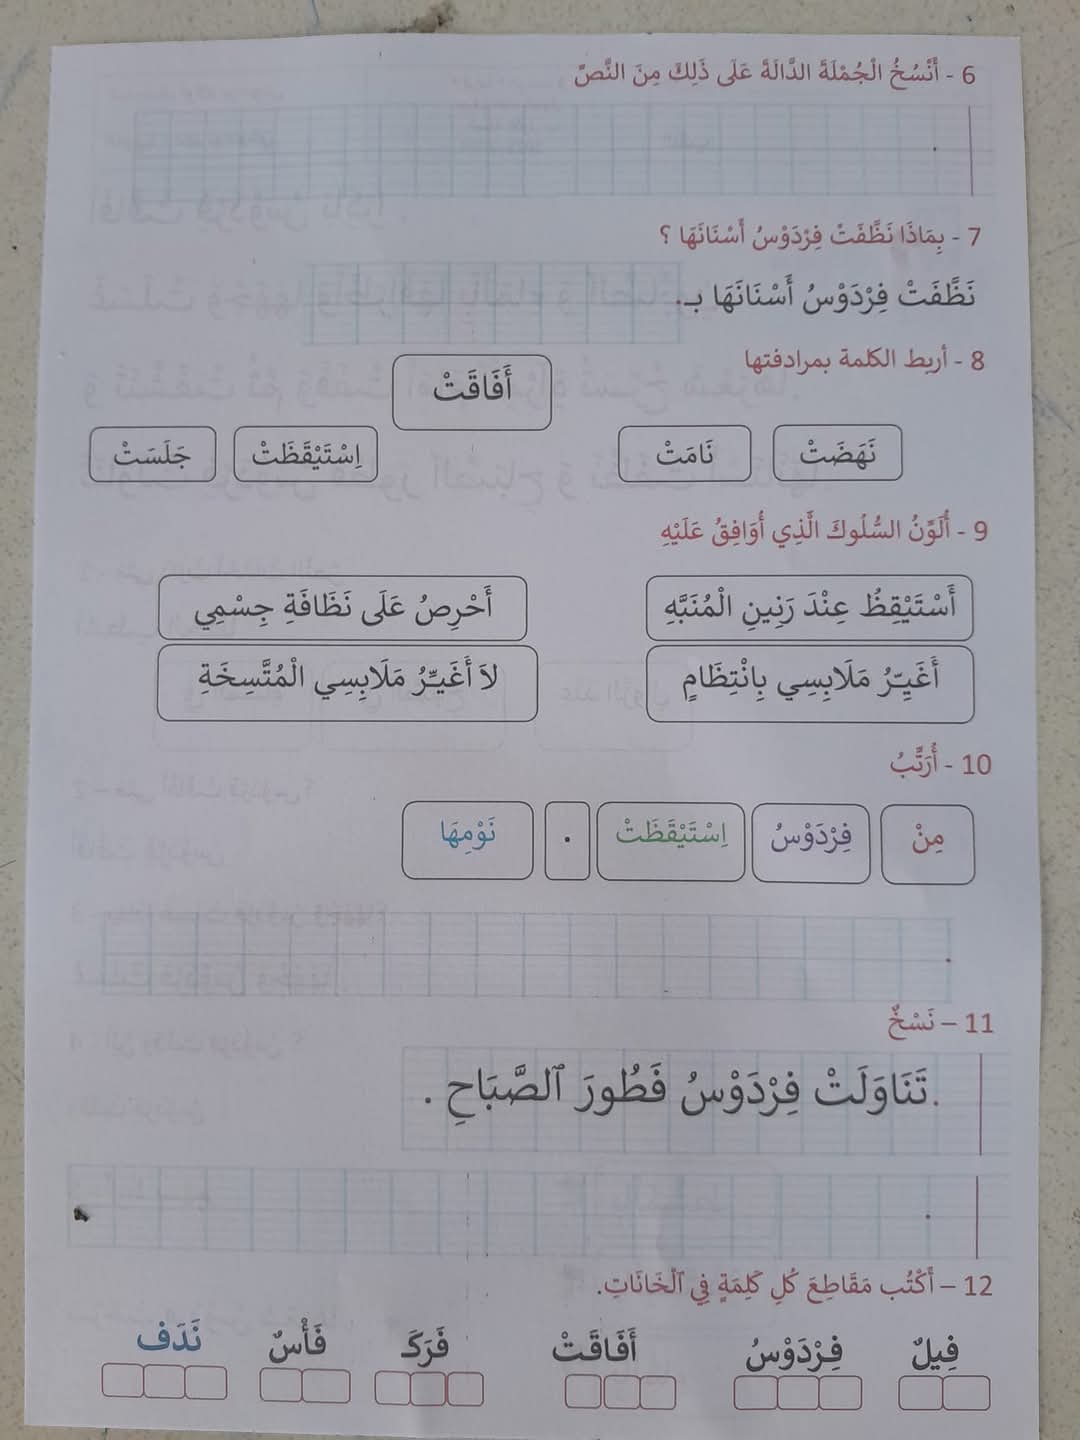 6 - أَنْسُخُ الْجُمْلَةَ الدَّالَةَ عَلَى ذَلِكَ مِنَ النَّصِّ
7 - بِمَاذَا نَظَّفَتْ فِرْدَوْسُ أَسْنَانَهَا ؟
نَظَّفَتْ فِرْدَوْسُ أَسْنَانَهَا بـ.
8 - أربط الكلمة بمرادفتها
أَفَاقَتْ
نَهَضَتْ نَامَتْ اِسْتَيْقَظَتْ جَلَسَتْ
9 - أُلَوِّنُ السُّلُوكَ الَّذِي أُوَافِقُ عَلَيْهِ
أَسْتَيْقِظُ عِنْدَ رَنِينِ الْمُنَبَّهِ أَحْرِصُ عَلَى نَظَافَةِ جِسْمِي
أُغَيِّرُ مَلَابِسِي بِانْتِظَامٍ لاَ أُغَيِّرُ مَلَابِسِي الْمُتَّسِخَةِ
10 - أُرَتِّبُ
مِنْ فِرْدَوْسُ اِسْتَيْقَظَتْ . نَوْمِهَا
11 – نَسْخٌ
.تَنَاوَلَتْ فِرْدَوْسُ فَطُورَ ٱلصَّبَاحِ .
12 – أَكْتُب مَقَاطِعَ كُلِ كَلِمَةٍ فِي ٱلْخَانَاتِ.
فِيلٌ فِرْدَوْسُ أَفَاقَتْ فَرَكَـ فَأْسٌ نَدَف